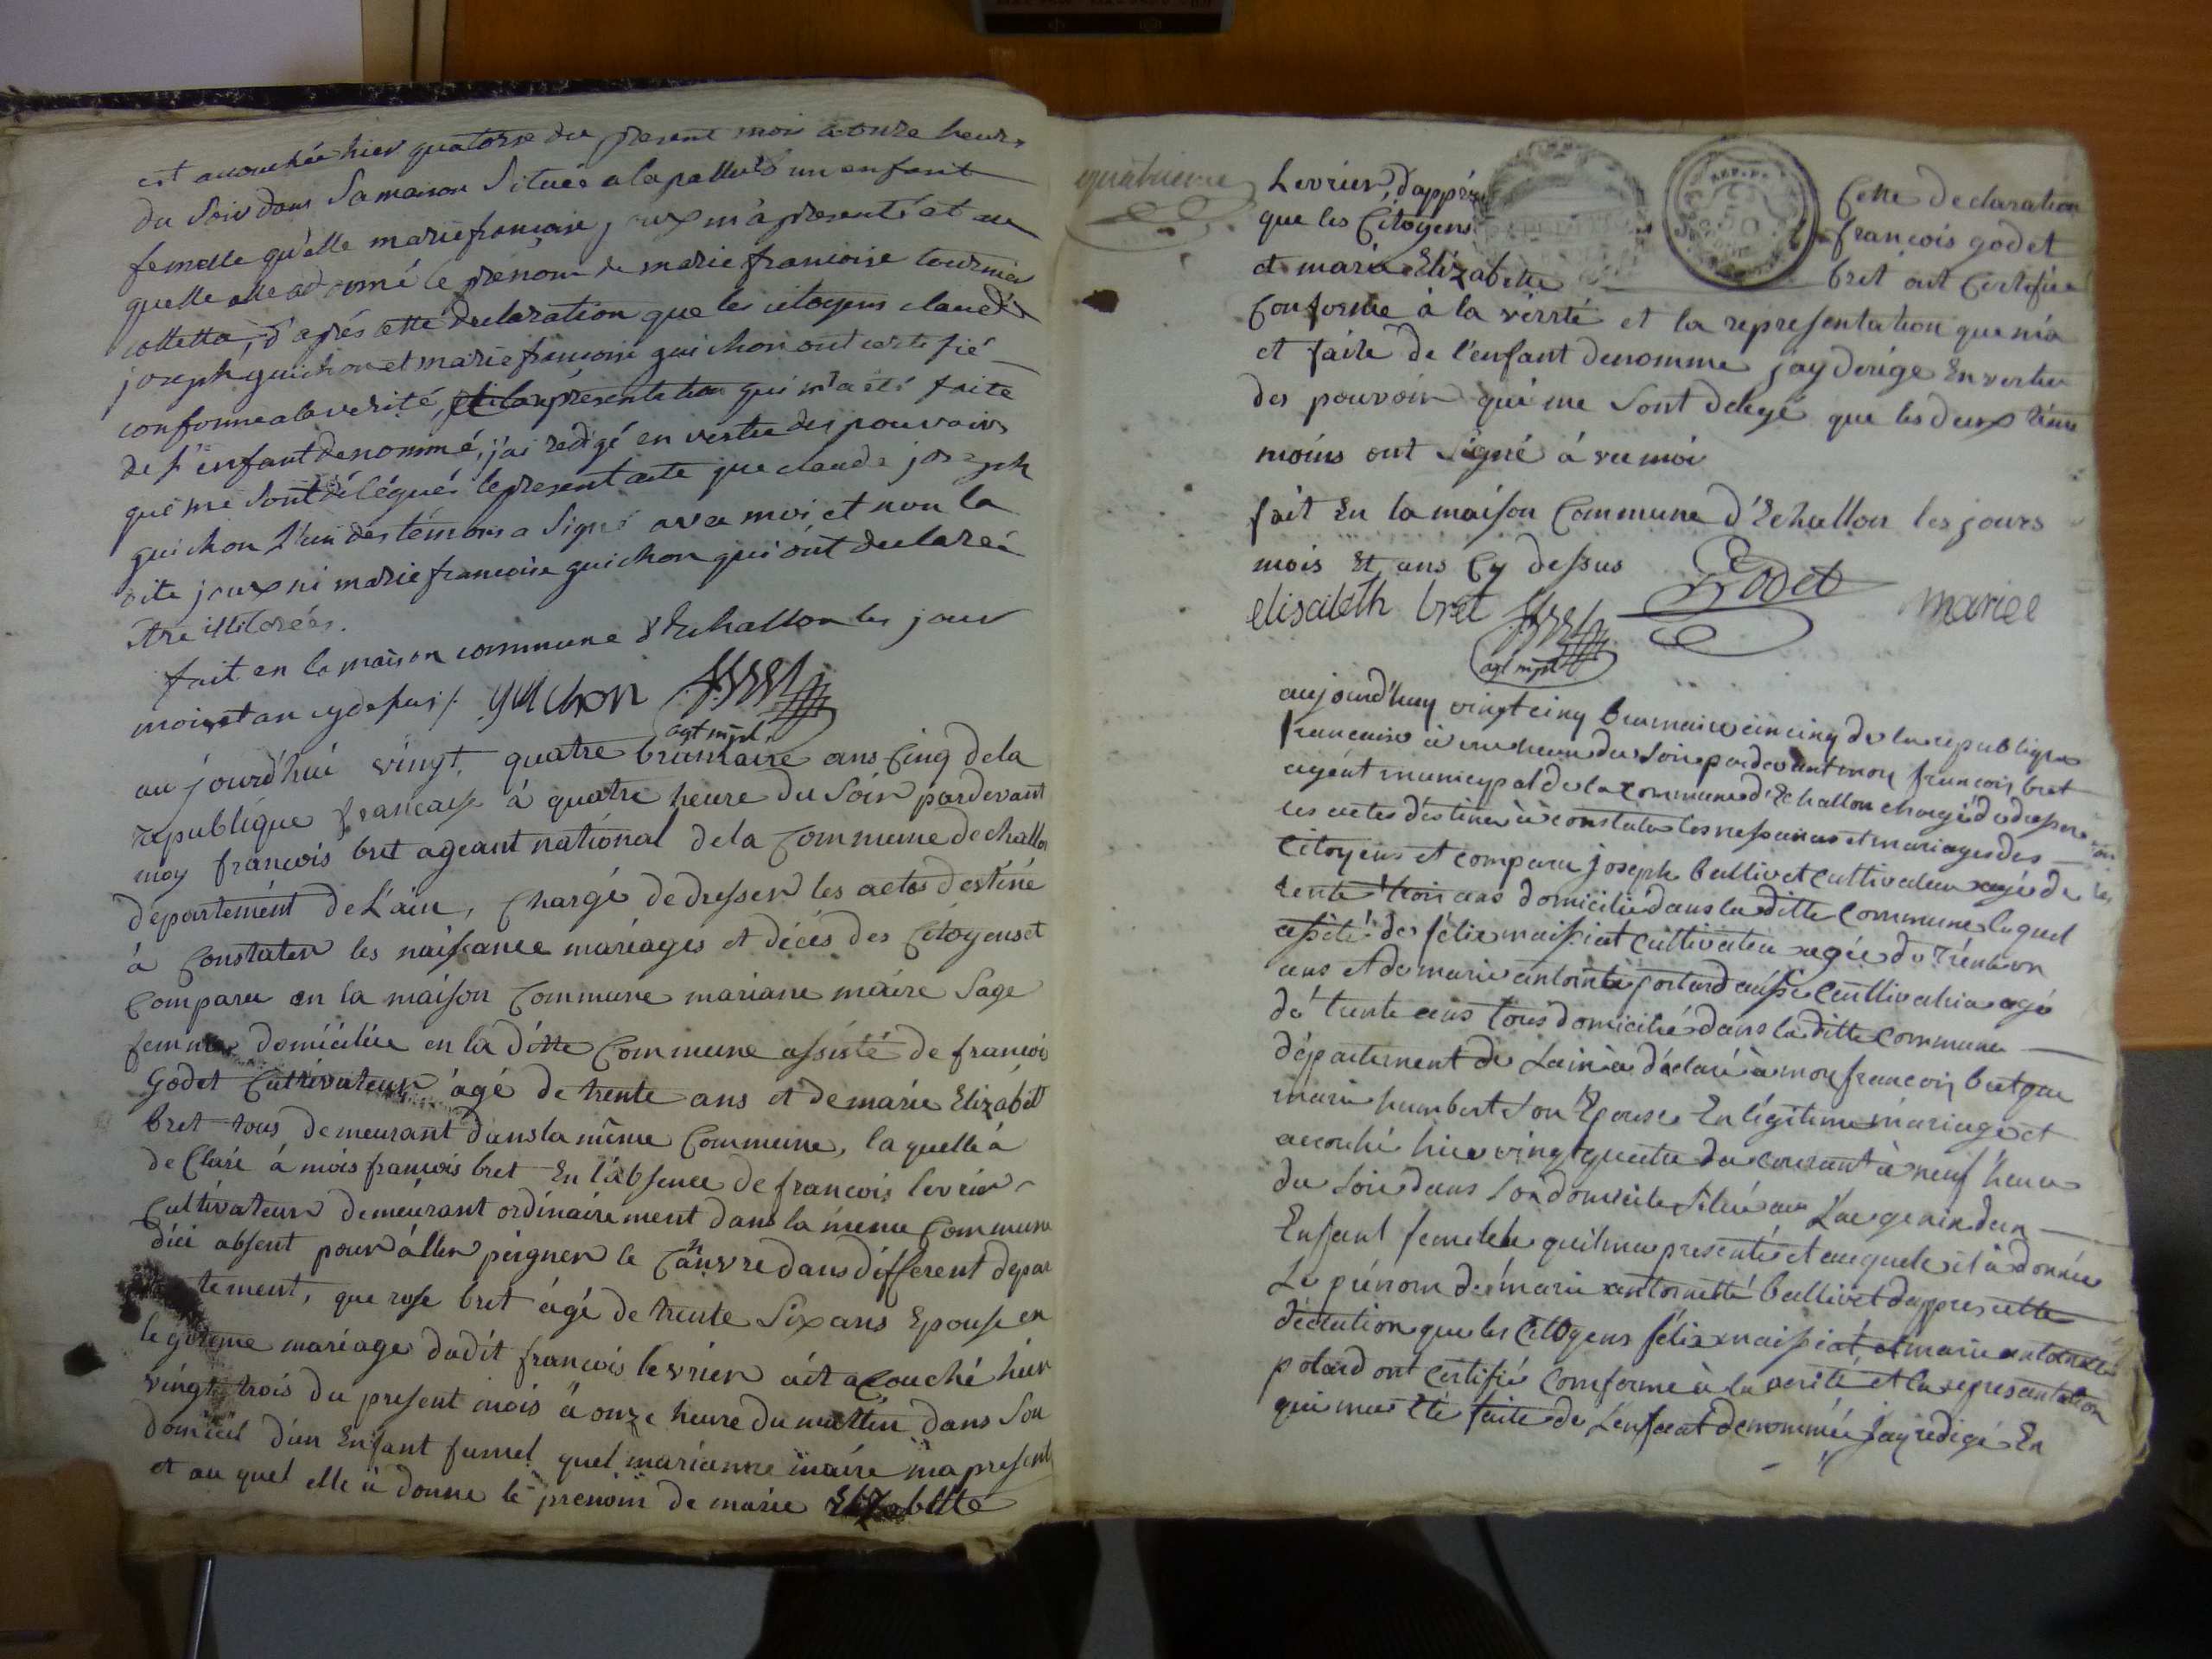 est accouchée hier quatorse du present mois à onze heures
du soir dans sa maison située a la pallud d'un enfant
femelle qu'elle marie francoise joux m'à presenté et au
quelle elle a donné le prenom de marie francoise tournier
colletta, d'après cette declaration que les citoyens claude
joseph guichon et marie francoise guichon ont certifié
conforme a la verité, et la représentation qui m'a été faite
de l'enfant denommé, j'ai redigé en vertu des pouvoirs
qui me sont délégués le present acte que claude joseph
guichon l'un des témoins a signé avec moi et non la
dite joux ni marie francoise guichon qui ont declareé
être illitorées.
fait en la maison commune d'Echallon les jour
mois et an cy dessus /. guichon
agt mpl
aujourd'hui vingt quatre brumaire ans cinq de la
republique francaise à quatre heure du soir pardevant
moy francois bret ageant national de la commune dechallon
departement de L'ain, chargé de dresser les actes destiné
à constater les naissance mariages et décés des citoyens et
comparu en la maison commune mariane maire sage
femme domiciliée en la ditte commune assisté de francois
godet cultivateur âgé de trente ans et de marie Elizabett
bret tous demeurant dans la même commune, la quelle à
declaré à mois francois bret En l'absence de francois levrier
cultivateur demeurant ordinairement dans la meme commune
dici absent pour âller peigner le canvre dans different depar
tement, que rose bret âgé de trente six ans Epouse en
legitime mariage dudit francois levrier ait acouché hier
vingt trois du present mois à onze heure du mattin dans son
domicil d'un Enfant fumel quel marianne maire ma presenté
et au quel elle à donne le prenom de marie Elizabette
quatrieme
Levrier, dapprés Cette declaration
que les Citoyens francois godet
et marie Elizabette bret ont Certifiée
Conforme à la verrté et la representation que m'a
et faite de l'enfant denomme jay derigé En vertu
des pouvoir qui me sont delegé que les deux témoin
moins ont signé à vec moi
fait En la maison Commune d'Echallon les jours
mois Et ans cy dessus
elisabeth bret Godet mariee
agt mpl
aujourd'huy vingt cinq brumaire ein cinq de la republique
francaise à une heure du soir pardevant moy francois bret
agent municypal de la commune d'Echallon chargé de dresser
les actes déstiné à constater les nessances et mariages des
Citoyens et comparu joseph ballivet cultivateur agé de
trente trois ans domicilié dans la ditte commune lequel
assité de félix maissiat cultivateur agée de trente un
ans et de marie antoinette potard aussi cultivatrice agé
dé trente ans tous domicilié dans la ditte commune
département de Lain à déclaré à moy francois bret que
marie humbert son Epouse En légitime mariage et
accouché hier vingt quatre du courant à neuf heure
du soir dans son domicile situé au Lac genin d'un
Enfant femelle quil ma presenté et auquele il à donnée
Le prénom de marie antoinette ballivet dappres cette
déclation que les Citoyens félix maissiat et marie antoinette
potard ont certifié comforme à la verité et la representation
qui ma été faite de Lenfant denommée Jay redigé En